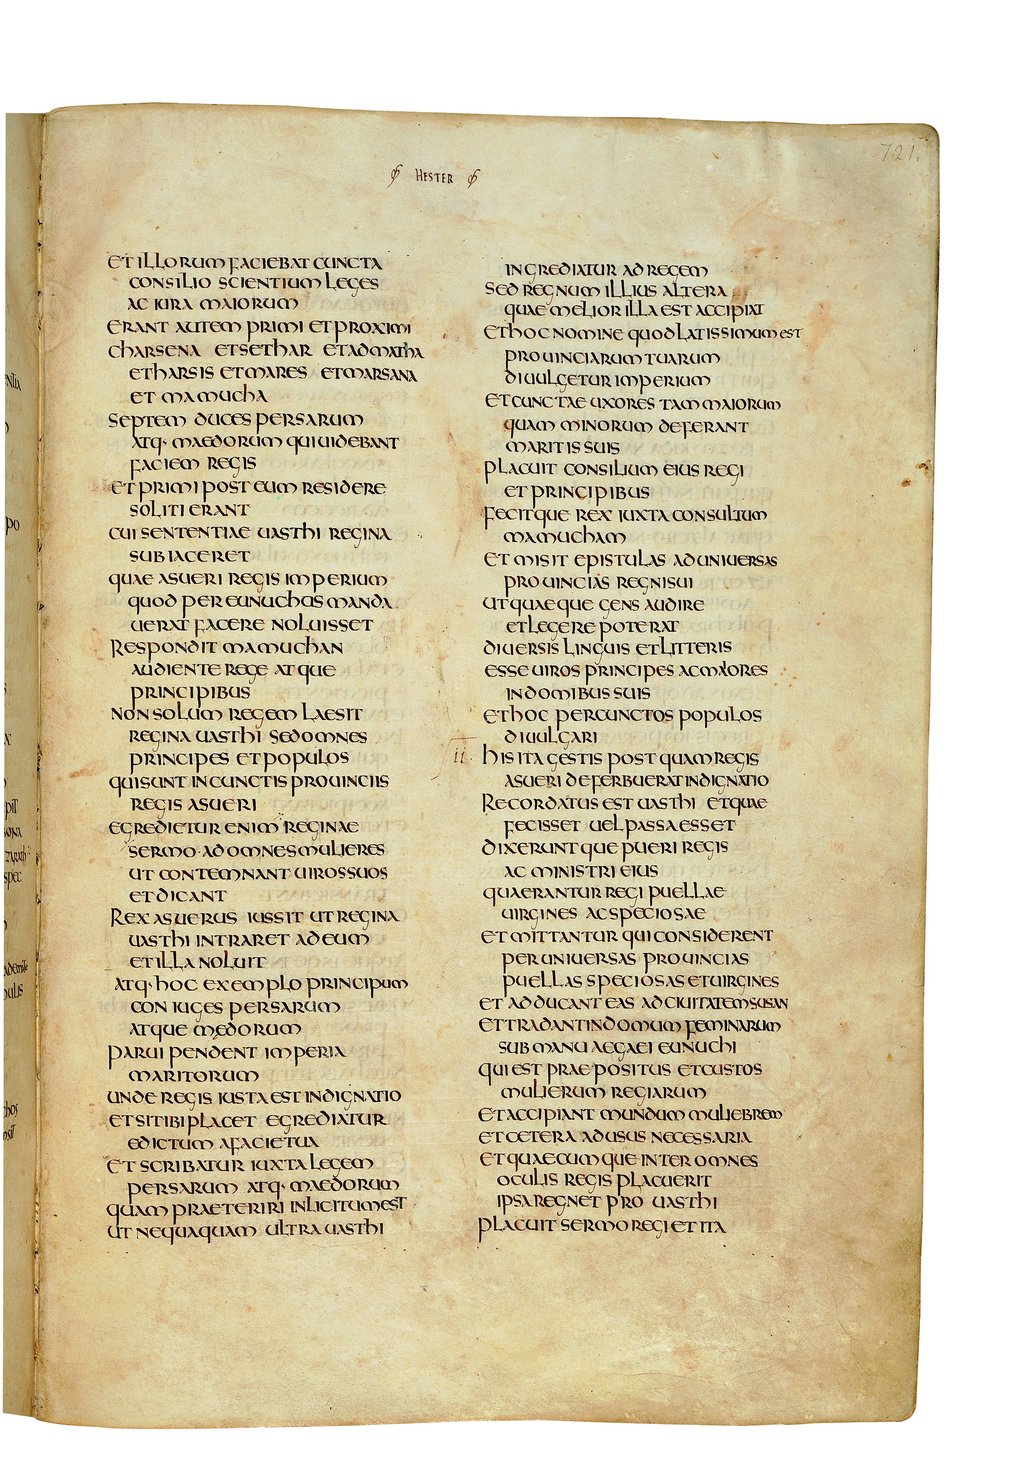 721.
HESTER
ET ILLORUM FACIEBAT CUNCTA
CONSILIO SCIENTIUM LEGES
AC IURA MAIORUM
ERANT AUTEM PRIMI ET PROXIMI
CHARSENA ET SETHAR ET ADMATHA
ET HARSIS ET MARES ET MARSANA
ET MAMUCHA
SEPTEM DUCES PERSARUM
ATQ· MAEDORUM QUI UIDEBANT
FACIEM REGIS
ET PRIMI POST EUM RESIDERE
SOLITI ERANT
CUI SENTENTIAE UASTHI REGINA
SUBIACERET
QUAE ASUERI REGIS IMPERIUM
QUOD PER EUNUCHOS MANDA
UERAT FACERE NOLUISSET
RESPONDIT MAMUCHAN
AUDIENTE REGE ATQUE
PRINCIPIBUS
NON SOLUM REGEM LAESIT
REGINA UASTHI SED OMNES
PRINCIPES ET POPULOS
QUI SUNT IN CUNCTIS PROUINCIIS
REGIS ASUERI
EGREDIETUR ENIM REGINAE
SERMO AD OMNES MULIERES
UT CONTEMNANT UIROS SUOS
ET DICANT
REX ASUERUS IUSSIT UT REGINA
UASTHI INTRARET AD EUM
ET ILLA NOLUIT
ATQ· HOC EXEMPLO PRINCIPUM
CONIUGES PERSARUM
ATQUE MEDORUM
PARUI PENDENT IMPERIA
MARITORUM
UNDE REGIS IUSTA EST INDIGNATIO
ET SI TIBI PLACET EGREDIATUR
EDICTUM A FACIE TUA
ET SCRIBATUR IUXTA LEGEM
PERSARUM ATQ· MAEDORUM
QUAM PRAETERIRI INLICITUM EST
UT NEQUAQUAM ULTRA UASTHI
INGREDIATUR AD REGEM
SED REGNUM ILLIUS ALTERA
QUAE MELIOR ILLA EST ACCIPIAT
ET HOC NOMINE QUOD LATISSIMUM EST
PROUINCIARUM TUARUM
DIUULGETUR IMPERIUM
ET CUNCTAE UXORES TAM MAIORUM
QUAM MINORUM DEFERANT
MARITIS SUIS
PLACUIT CONSILIUM EIUS REGI
ET PRINCIPIBUS
FECITQUE REX IUXTA CONSULTUM
MAMUCHAM
ET MISIT EPISTULAS AD UNIUERSAS
PROUINCIAS REGNI SUI
UT QUAEQUE GENS AUDIRE
ET LEGERE POTERAT
DIUERSIS LINGUIS ET LITTERIS
ESSE UIROS PRINCIPES AC MAIORES
IN DOMIBUS SUIS
ET HOC PER CUNCTOS POPULOS
DIUULGARI
II HIS ITA GESTIS POSTQUAM REGIS
ASUERI DEFERBUERAT INDIGNATIO
RECORDATUS EST UASTHI ET QUAE
FECISSET UEL PASSA ESSET
DIXERUNTQUE PUERI REGIS
AC MINISTRI EIUS
QUAERANTUR REGI PUELLAE
UIRGINES AC SPECIOSAE
ET MITTANTUR QUI CONSIDERENT
PER UNIUERSAS PROUINCIAS
PUELLAS SPECIOSAS ET UIRGINES
ET ADDUCANT EAS AD CIUITATEM SUSAN
ET TRADANT IN DOMUM FEMINARUM
SUB MANU AEGAEI EUNUCHI
QUI EST PRAEPOSITUS ET CUSTOS
MULIERUM REGIARUM
ET ACCIPIANT MUNDUM MULIEBREM
ET CETERA AD USUS NECESSARIA
ET QUAECUMQUE INTER OMNES
OCULIS REGIS PLACUERIT
IPSA REGNET PRO UASTHI
PLACUIT SERMO REGI ET ITA